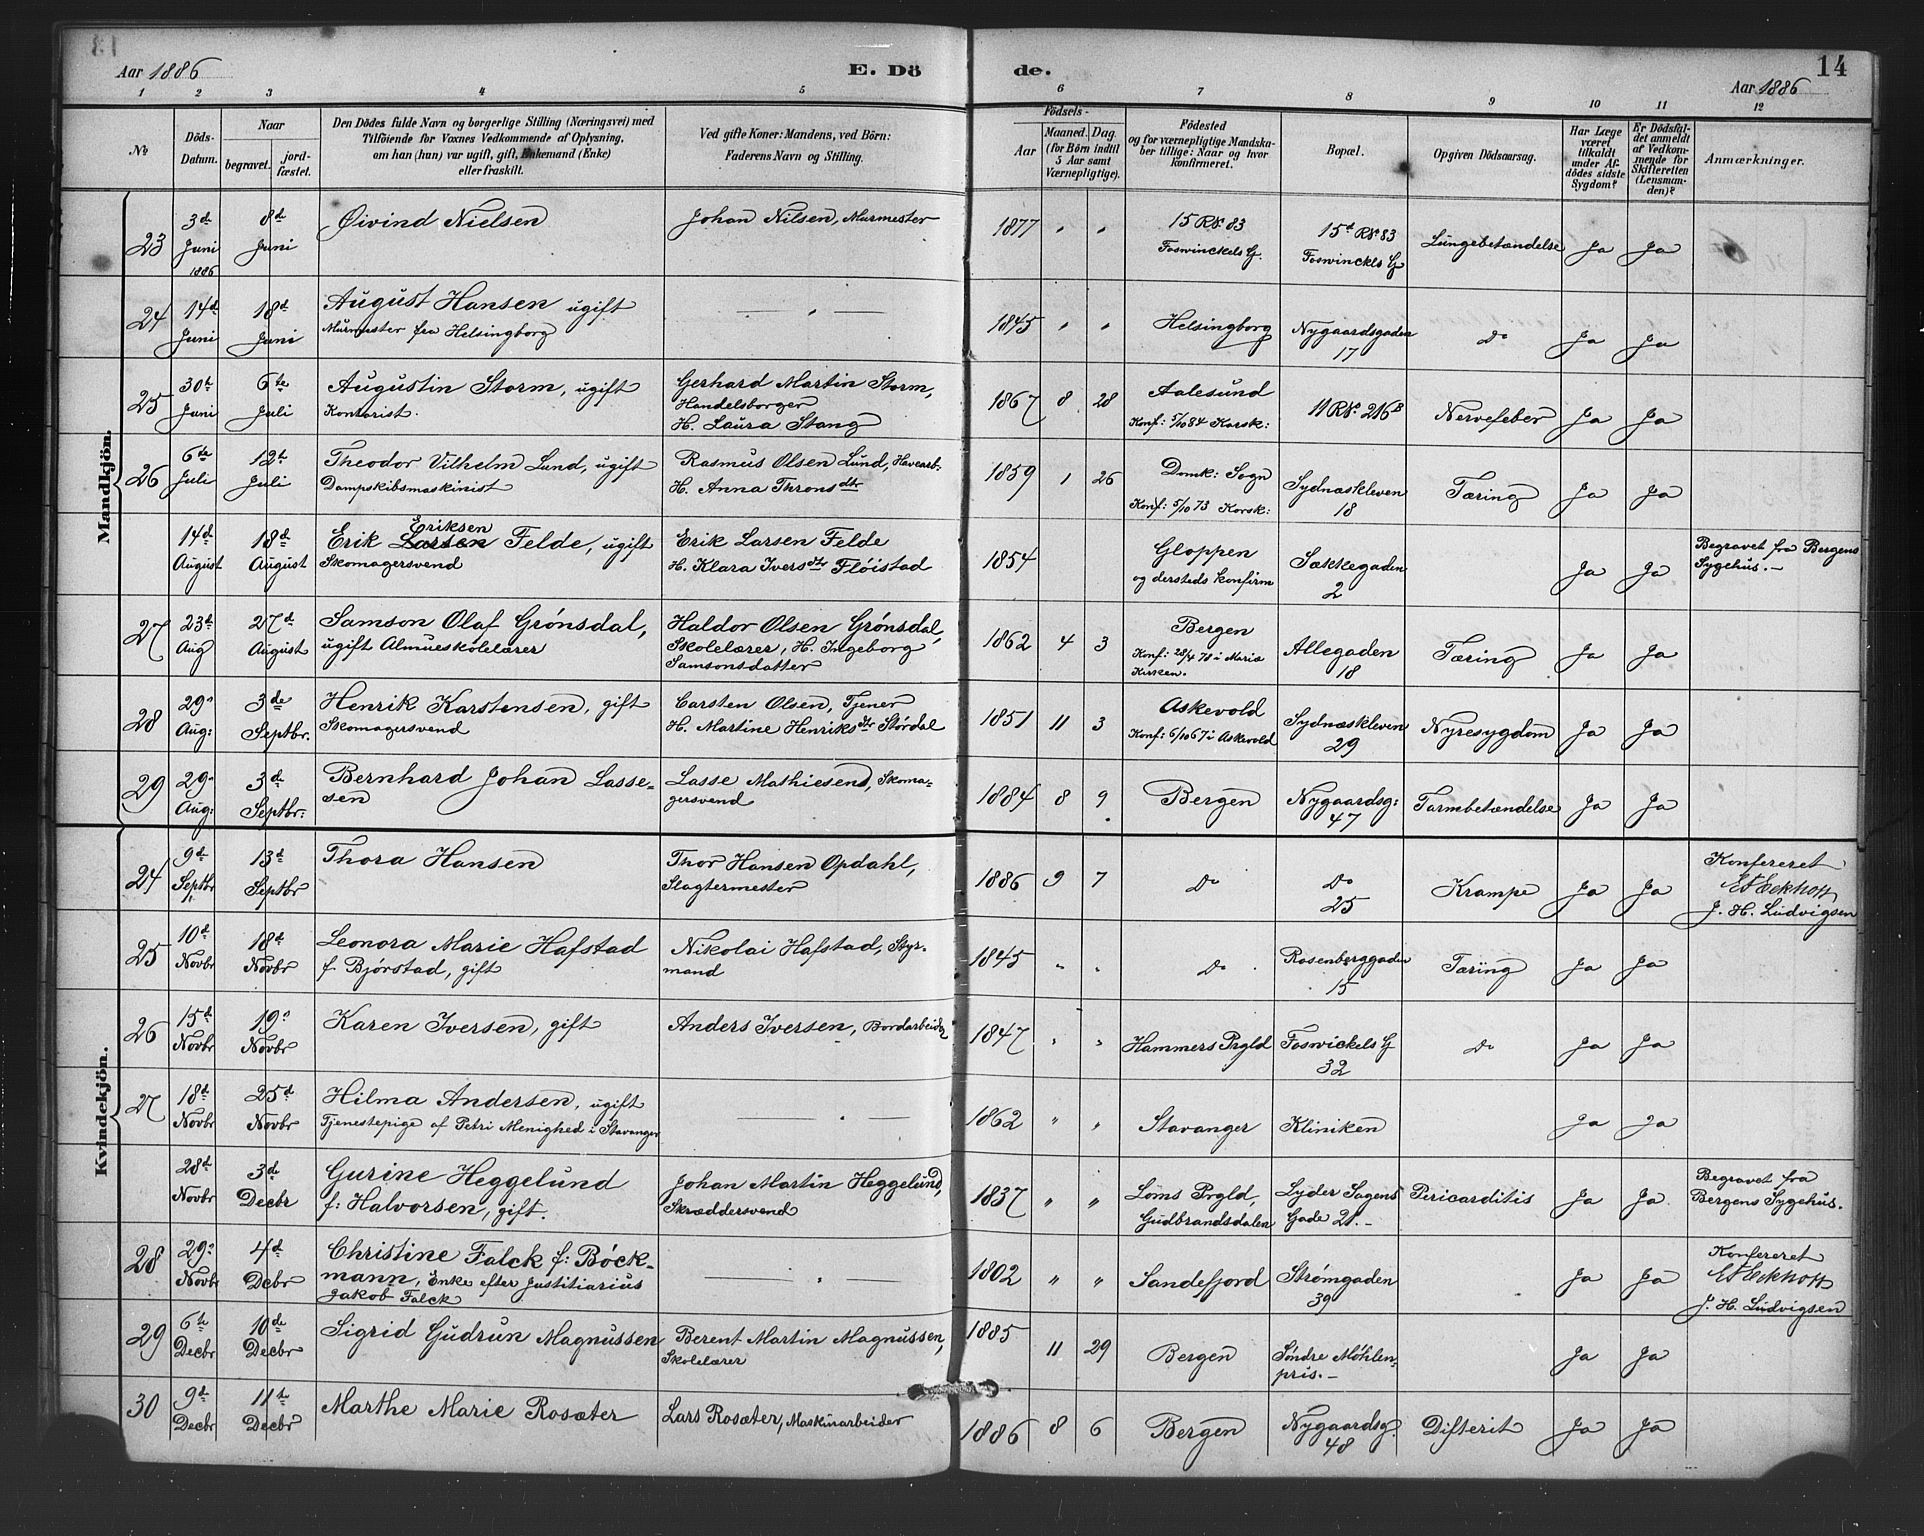 Aar 1886 E. Dö de. Aar 1886 14
1 2 3 4 5 6 7 8 9 10 11 12
№ Döds-Datum. Naar begravet. jordfæstet. Den Dödes fulde Navn og borgerlige Stilling (Næringsvei) med Tilföiende for Voxnes Vedkommende af Oplysning, om han (hun) var ugift, gift, Enkemand (Enke) eller fraskilt. Ved gifte Koner: Mandens, ved Börn: Faderens Navn og Stilling. Födsels- Aar Maaned. Dag. (for Börn indtil 5 Aar samt Værnepligtige). Födested og for værnepligtige Mandskaber tillige: Naar og hvor konfirmeret. Bopæl. Opgiven Dödsaarsag. Har Læge været tilkaldt under Afdödes sidste Sygdom? Er Dödsfaldet anmeldt af Vedkommende for Skifteretten (Lensmanden)? Anmærkninger.
Mandkjön.
23 3d Juni 1886 8d Juni Øivind Nielsen Johan Nilsen, Murmester 1877 " " 15 RNr. 83 Foswinckels G. 15d RNr. 83 Foswinckels G Lungebetændelse Ja Ja
24 14d Juni 18d Juni August Hansen ugift
Murmester fra Helsingborg — " — 1845 " " Helsingborg Nygaardsgaden 17 Do Ja Ja
25 30te Juni 6te Juli Augustin Storm, ugift
Kontorist. Gerhard Martin Storm,
Handelsborger
H. Laura Stang 1867 8 28 Aalesund
Konf: 5/10 84 Korsk: 11 RNr. 216B Nervefeber Ja Ja
26 6te Juli 12t Juli Theodor Vilhelm Lund, ugift
Dampskibsmaskinist Rasmus Olsen Lund, Havearb.
H. Anna Thronsdtr 1859 1 26 Domk: Sogn
Konf: 5/10 73 Korsk: Sydnæskleven 18 Tæring Ja Ja
14d August 18d August Eriksen
Erik Larsen Felde, ugift
Skomagersvend Erik Larsen Felde
H. Klara Iversdtr Flöistad 1854 Gloppen
og dersteds konfirm Sækkegaden 2 Ja Ja Begravet fra Bergens
Sygehus.—
27 23d Aug 27d August Samson Olaf Grönsdal,
ugift Almueskolelærer Haldor Olsen Grönsdal,
Skolelærer, H. Ingeborg
Samsonsdatter 1862 4 3 Bergen
Konf: 28/4 78 i Maria
Kirken. Allegaden 18 Tæring Ja Ja
28 29. Aug: 3de Septbr. Henrik Karstensen, gift
Skomagersvend Carsten Olsen, Tjener
H. Martine Henriksdtr Stördal 1851 11 3 Askevold
Konf: 6/10 67 i Askevold Sydnæskleven 29 Nyresygdom Ja Ja
29 29. Aug: 3d Septbr: Bernhard Johan Lasse-
sen Lasse Mathiesen, Skoma-
gersvend 1884 8 9 Bergen Nygaardsg: 47 Tarmbetændelse Ja Ja
Kvindekjön.
24 9d Septbr 13d Septbr Thora Hansen Thor Hansen Opdahl,
Slagtermester 1886 9 7 Do Do 25 Krampe Ja Ja Konfereret
E Eckhoff
J. H. Ludvigsen
25 10d Novbr 18d Novbr Leonora Marie Hafstad
f. Bjørstad, gift Nikolai Hafstad, Styr-
mand 1845 " " Do Rosenberggaden 15 Tæring Ja Ja
26 15d Novbr 19. Novbr Karen Iversen, gift Anders Iversen, Bordarbeider 1847 " " Hammers Prgld Foswickels G 32 Do Ja Ja
27 18d Novbr 25d Novbr Hilma Andersen, ugift
Tjenestepige af Petri Menighed i Stavanger — " — 1862 " " Stavanger Kliniken Ja Ja
28d Novbr 3de Decbr Gurine Heggelund
f: Halvorsen, gift. Johan Martin Heggelund,
Skræddersvend 1837 " " Loms Prgld,
Gudbrandsdalen Lyder Sagens
Gade 21.— Pericarditis Ja Ja Begravet fra
Bergens Sygehus.
28 29. Novbr 4d Dcbr Christine Falck f: Böck-
mann, Enke efter Justitiarius
Jakob Falck — " — 1802 " " Sandefjord Strömgaden 39 Ja Ja Konfereret
E Eckhoff
J. H. Ludvigsen
29 6te Decbr 10de Decbr Sigrid Gudrun Magnussen Berent Martin Magnussen,
Skolelærer 1885 11 29 Bergen Söndre Möhlen-
pris.— Ja Ja
30 9d Decbr 11te Decbr Marthe Marie Rosæter Lars Rosæter, Maskinarbeider 1886 8 6 Bergen Nygaardsg. 48 Difterit Ja Ja